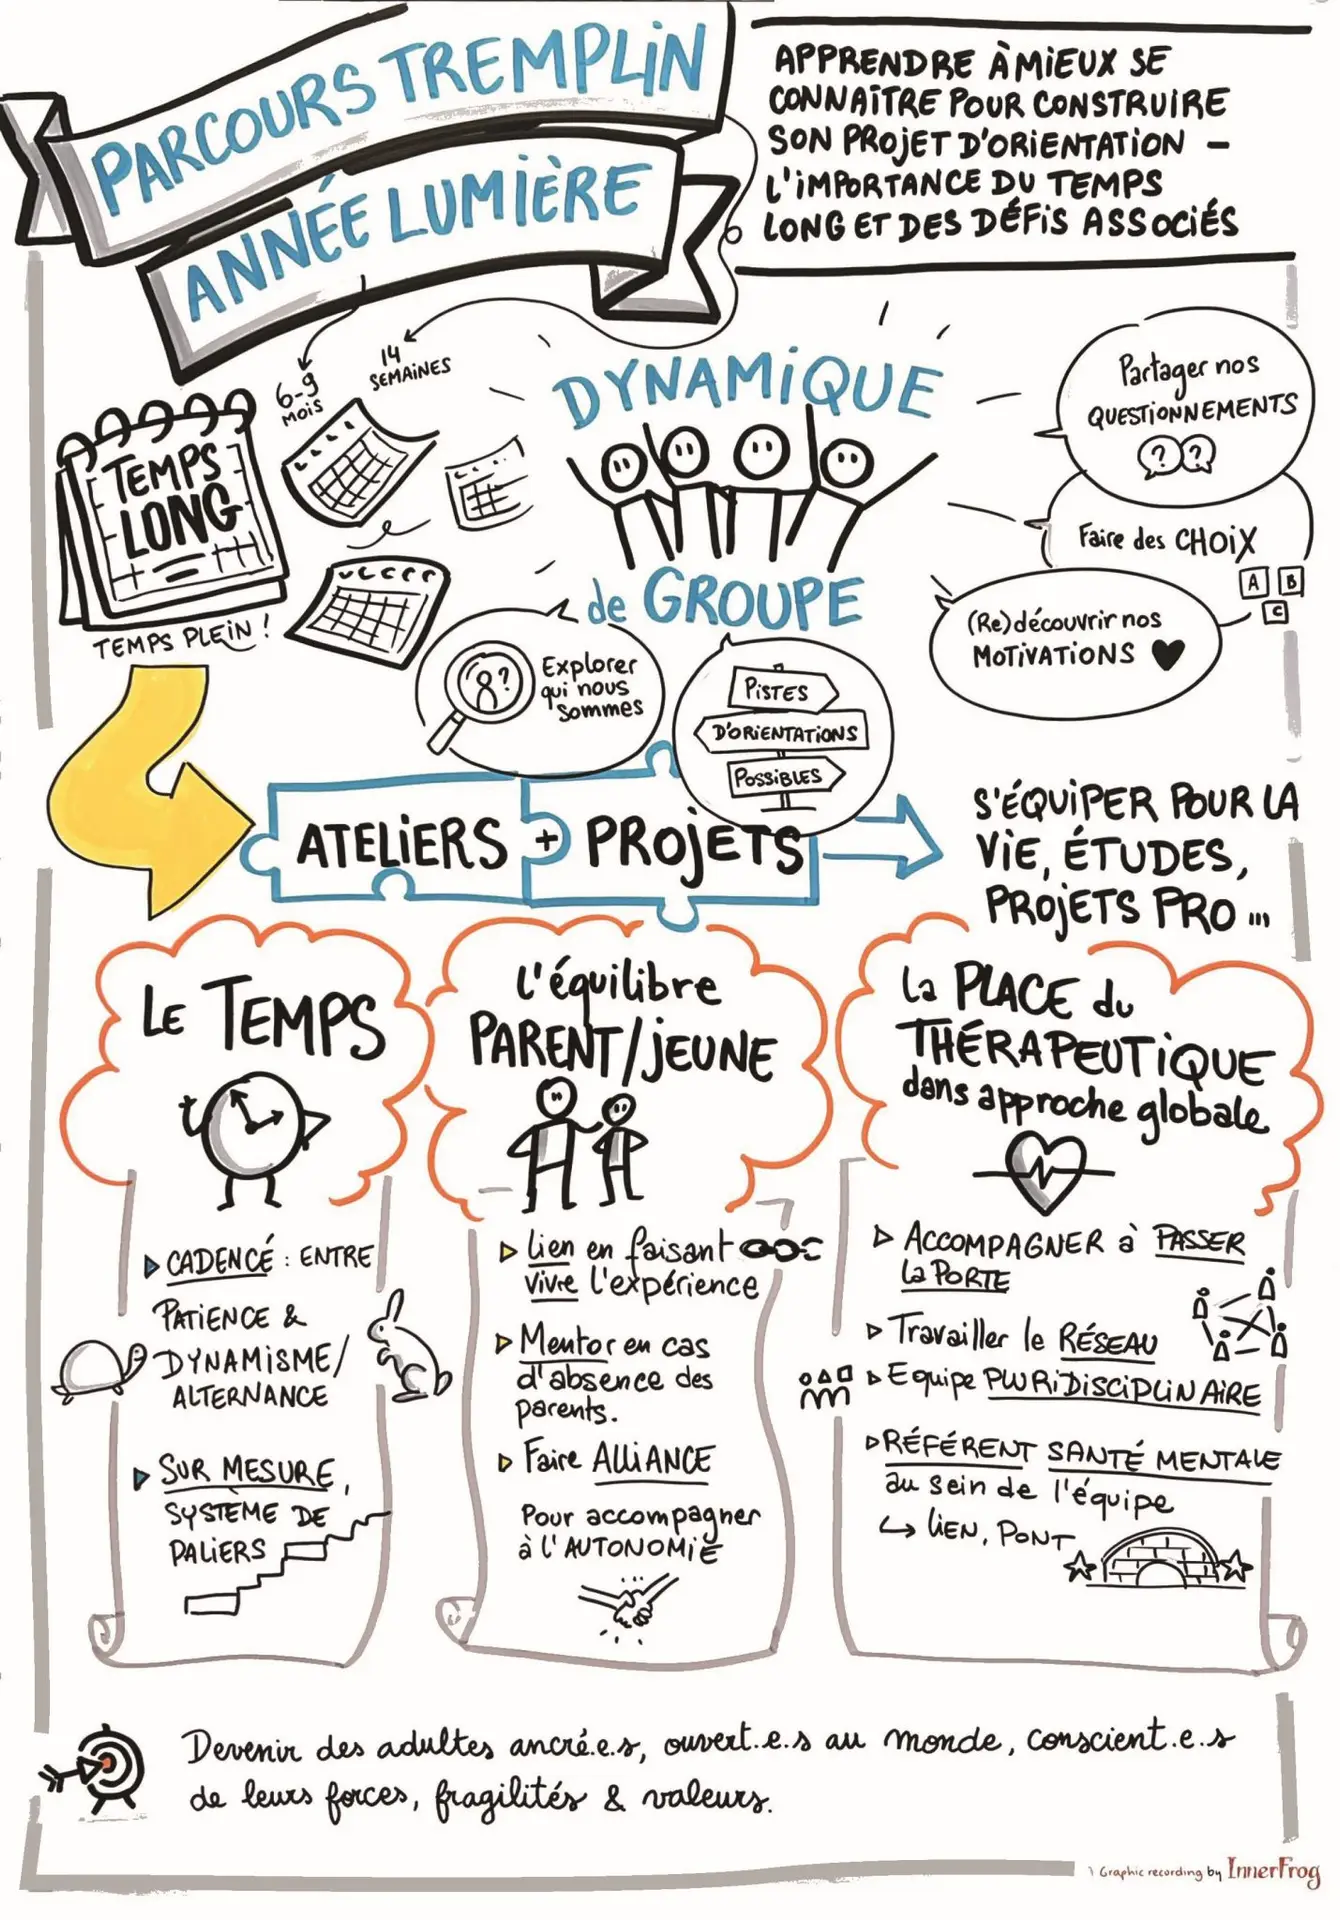 PARCOURS TREMPLIN
ANNÉE LUMIÈRE
APPRENDRE À MIEUX SE
CONNAÎTRE POUR CONSTRUIRE
SON PROJET D'ORIENTATION –
L'IMPORTANCE DU TEMPS
LONG ET DES DÉFIS ASSOCIÉS
6-9
MOIS
14
SEMAINES
TEMPS
LONG
TEMPS PLEIN !
DYNAMIQUE
de GROUPE
Partager nos
QUESTIONNEMENTS
? ?
Faire des CHOIX
A B
C
(Re)découvrir nos
MOTIVATIONS
?
Explorer
qui nous
sommes
PISTES
D'ORIENTATIONS
POSSIBLES
ATELIERS + PROJETS
S'ÉQUIPER POUR LA
VIE, ÉTUDES,
PROJETS PRO ...
LE TEMPS
CADENCÉ : ENTRE
PATIENCE &
DYNAMISME/
ALTERNANCE
SUR MESURE,
SYSTÈME DE
PALIERS
L'équilibre
PARENT/JEUNE
Lien en faisant
vivre l'expérience
Mentor en cas
d'absence des
parents.
Faire ALLIANCE
Pour accompagner
à l'AUTONOMIE
La PLACE du
THÉRAPEUTIQUE
dans approche globale
ACCOMPAGNER à PASSER
La PORTE
Travailler le RÉSEAU
Equipe PLURIDISCIPLINAIRE
RÉFÉRENT SANTÉ MENTALE
au sein de l'équipe
↪ LIEN, PONT
Devenir des adultes ancré.e.s, ouvert.e.s au monde, conscient.e.s
de leurs forces, fragilités & valeurs.
Graphic recording by InnerFrog